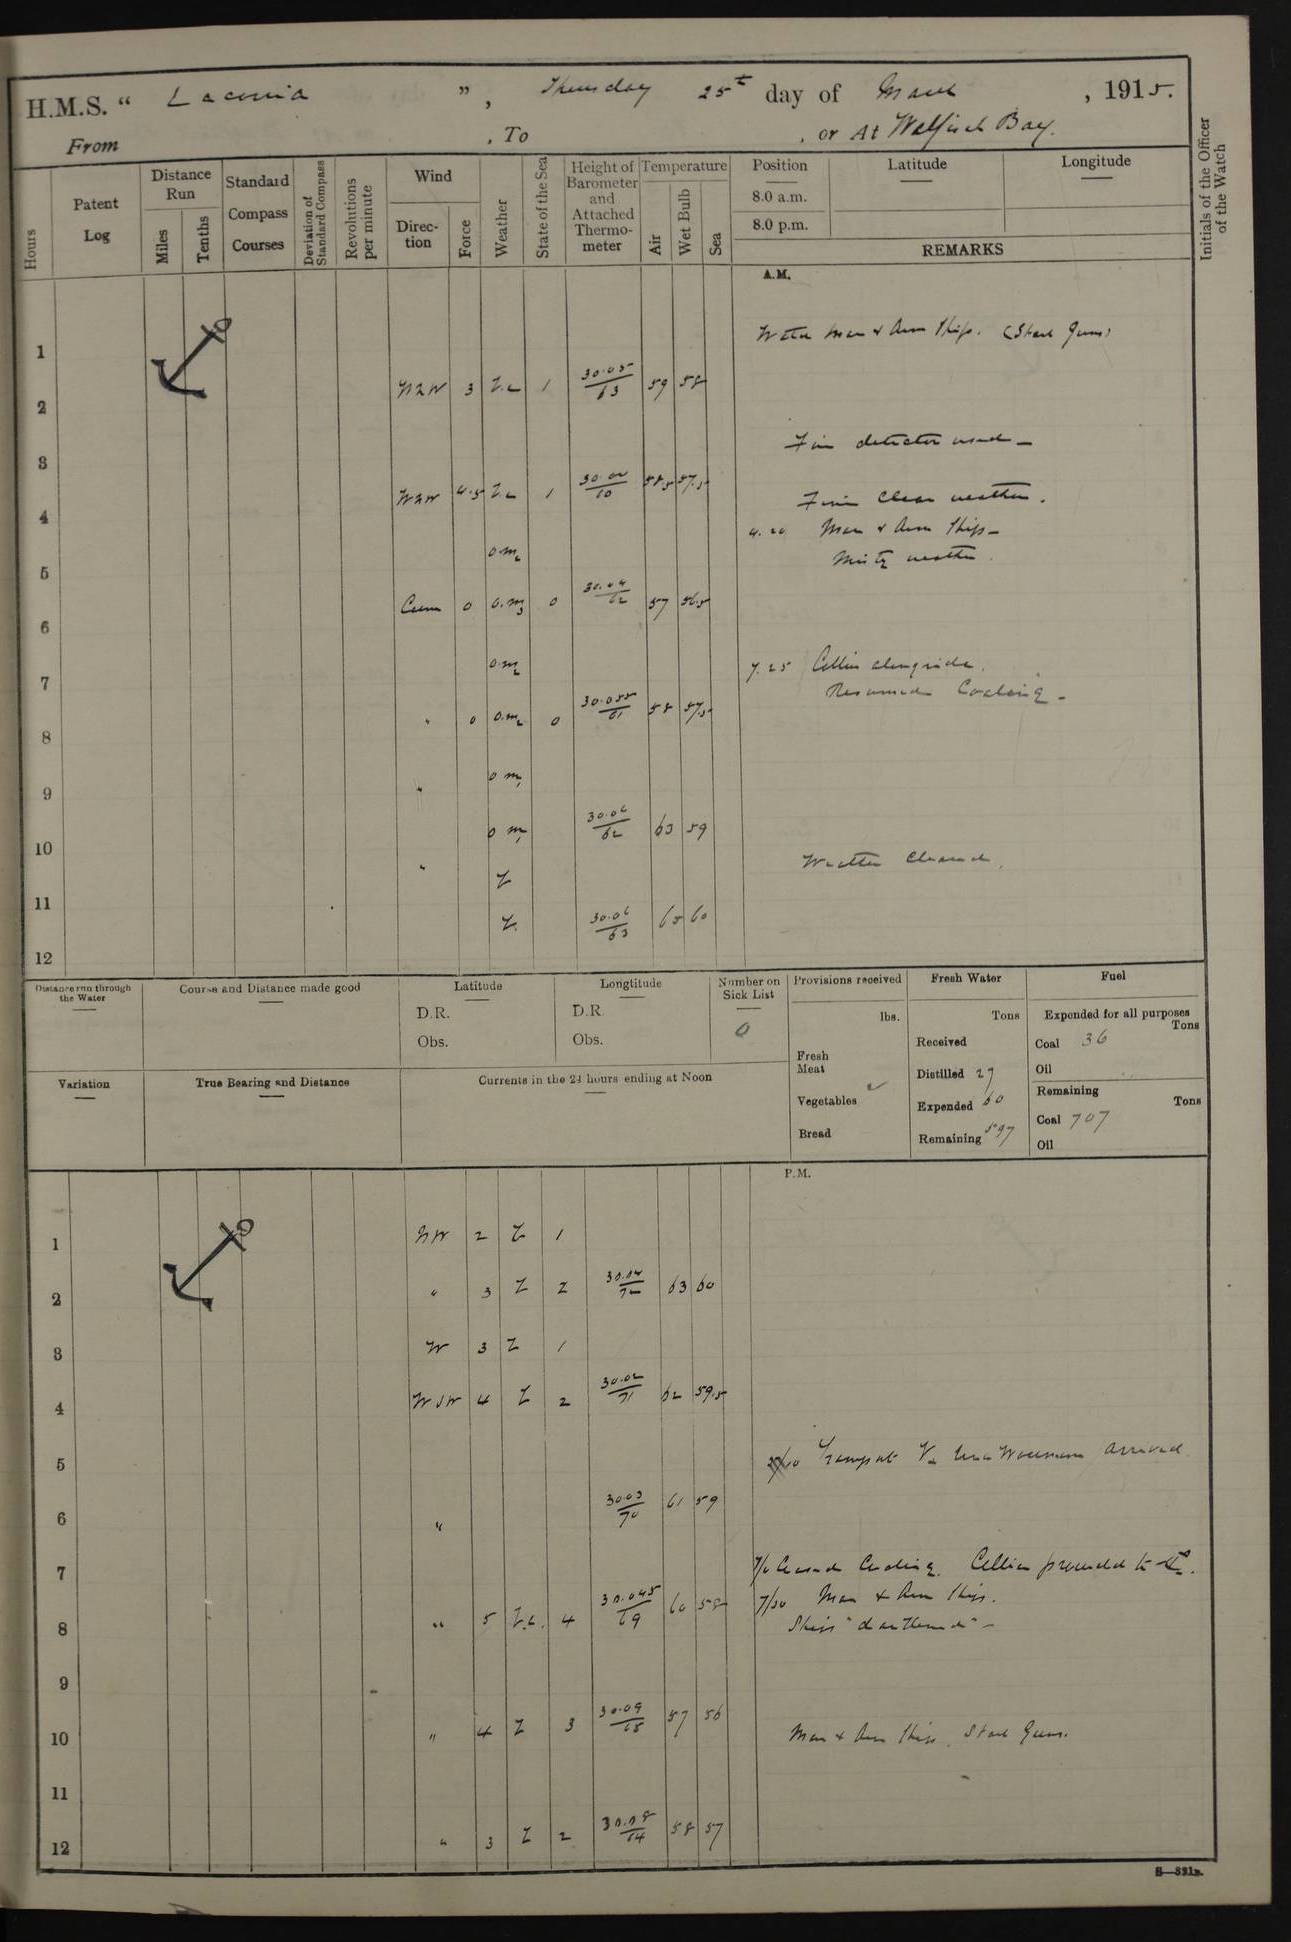 H.M.S. “ Laconia ”, Thursday 25th day of March, 1915.
From , To , or At Walfisch Bay.
Hours
Patent Log
Distance Run
Miles
Tenths
Standard Compass Courses
Deviation of Standard Compass
Revolutions per minute
Wind
Direction
Force
Weather
State of the Sea
Height of Barometer and Attached Thermometer
Temperature
Air
Wet Bulb
Sea
Position
8.0 a.m.
8.0 p.m.
Latitude
Longitude
REMARKS
Initials of the Officer of the Watch
A.M.
1
Watch man & Arm Ship. (Starbd Guns)
3 1 30.05/63 59 58
2
3
4.5 1 60 58.5 57.5
Fine clear weather.
4
4.20 Man & Arm Ship
o.m2
Misty weather.
5
Calm 0 o.m3 0 30.04/62 57 56.5
6
o.m2
7.25 Collier alongside.
7
Resumed Coaling
" 0 o.m2 0 30.055/61 58 57.5
8
" o m1
9
o m1 30.06/62 63 59
10
" Weather Cleared.
11
30.06/63 65 60
12
Distance run through the Water
Course and Distance made good
Latitude
D.R.
Obs.
Longtitude
D.R.
Obs.
Number on Sick List
0
Provisions received
lbs.
Fresh Meat
Vegetables
Bread
Fresh Water
Tons
Received
Distilled 27
Expended 60
Remaining 597
Fuel
Expended for all purposes
Tons
Coal 36
Oil
Remaining
Tons
Coal 707
Oil
Variation
True Bearing and Distance
Currents in the 24 hours ending at Noon
P.M.
1
NW 2 1
2
" 3 2 30.04/72 63 60
3
W 3 1
4
WSW 4 2 30.02/71 62 59.5
5
arrived
6
" 30.03/70 61 59
7
Ceased Coaling. Collier proceeded to
8
" 5 4 30.045/69 60 58
7/30 Man & Arm Ship.
Ship "darkened"
9
10
" 4 3 30.09/65 57 56
Man & Arm Ship, Starbd Guns.
11
12
" 3 2 30.08/64 58 57
S—321B.